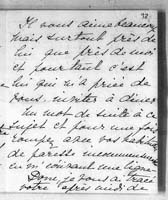 92
Il vous aime beaucoup
mais surtout près de
lui que près de moi
et pourtant c'est
lui qui m'a priée de
vous inviter à dîner
un mot de suite à ce
sujet et pour une fois
rompez avec vos habitudes
de paresse
en m'écrivant une ligne
Donnez-vous à
votre après midi de